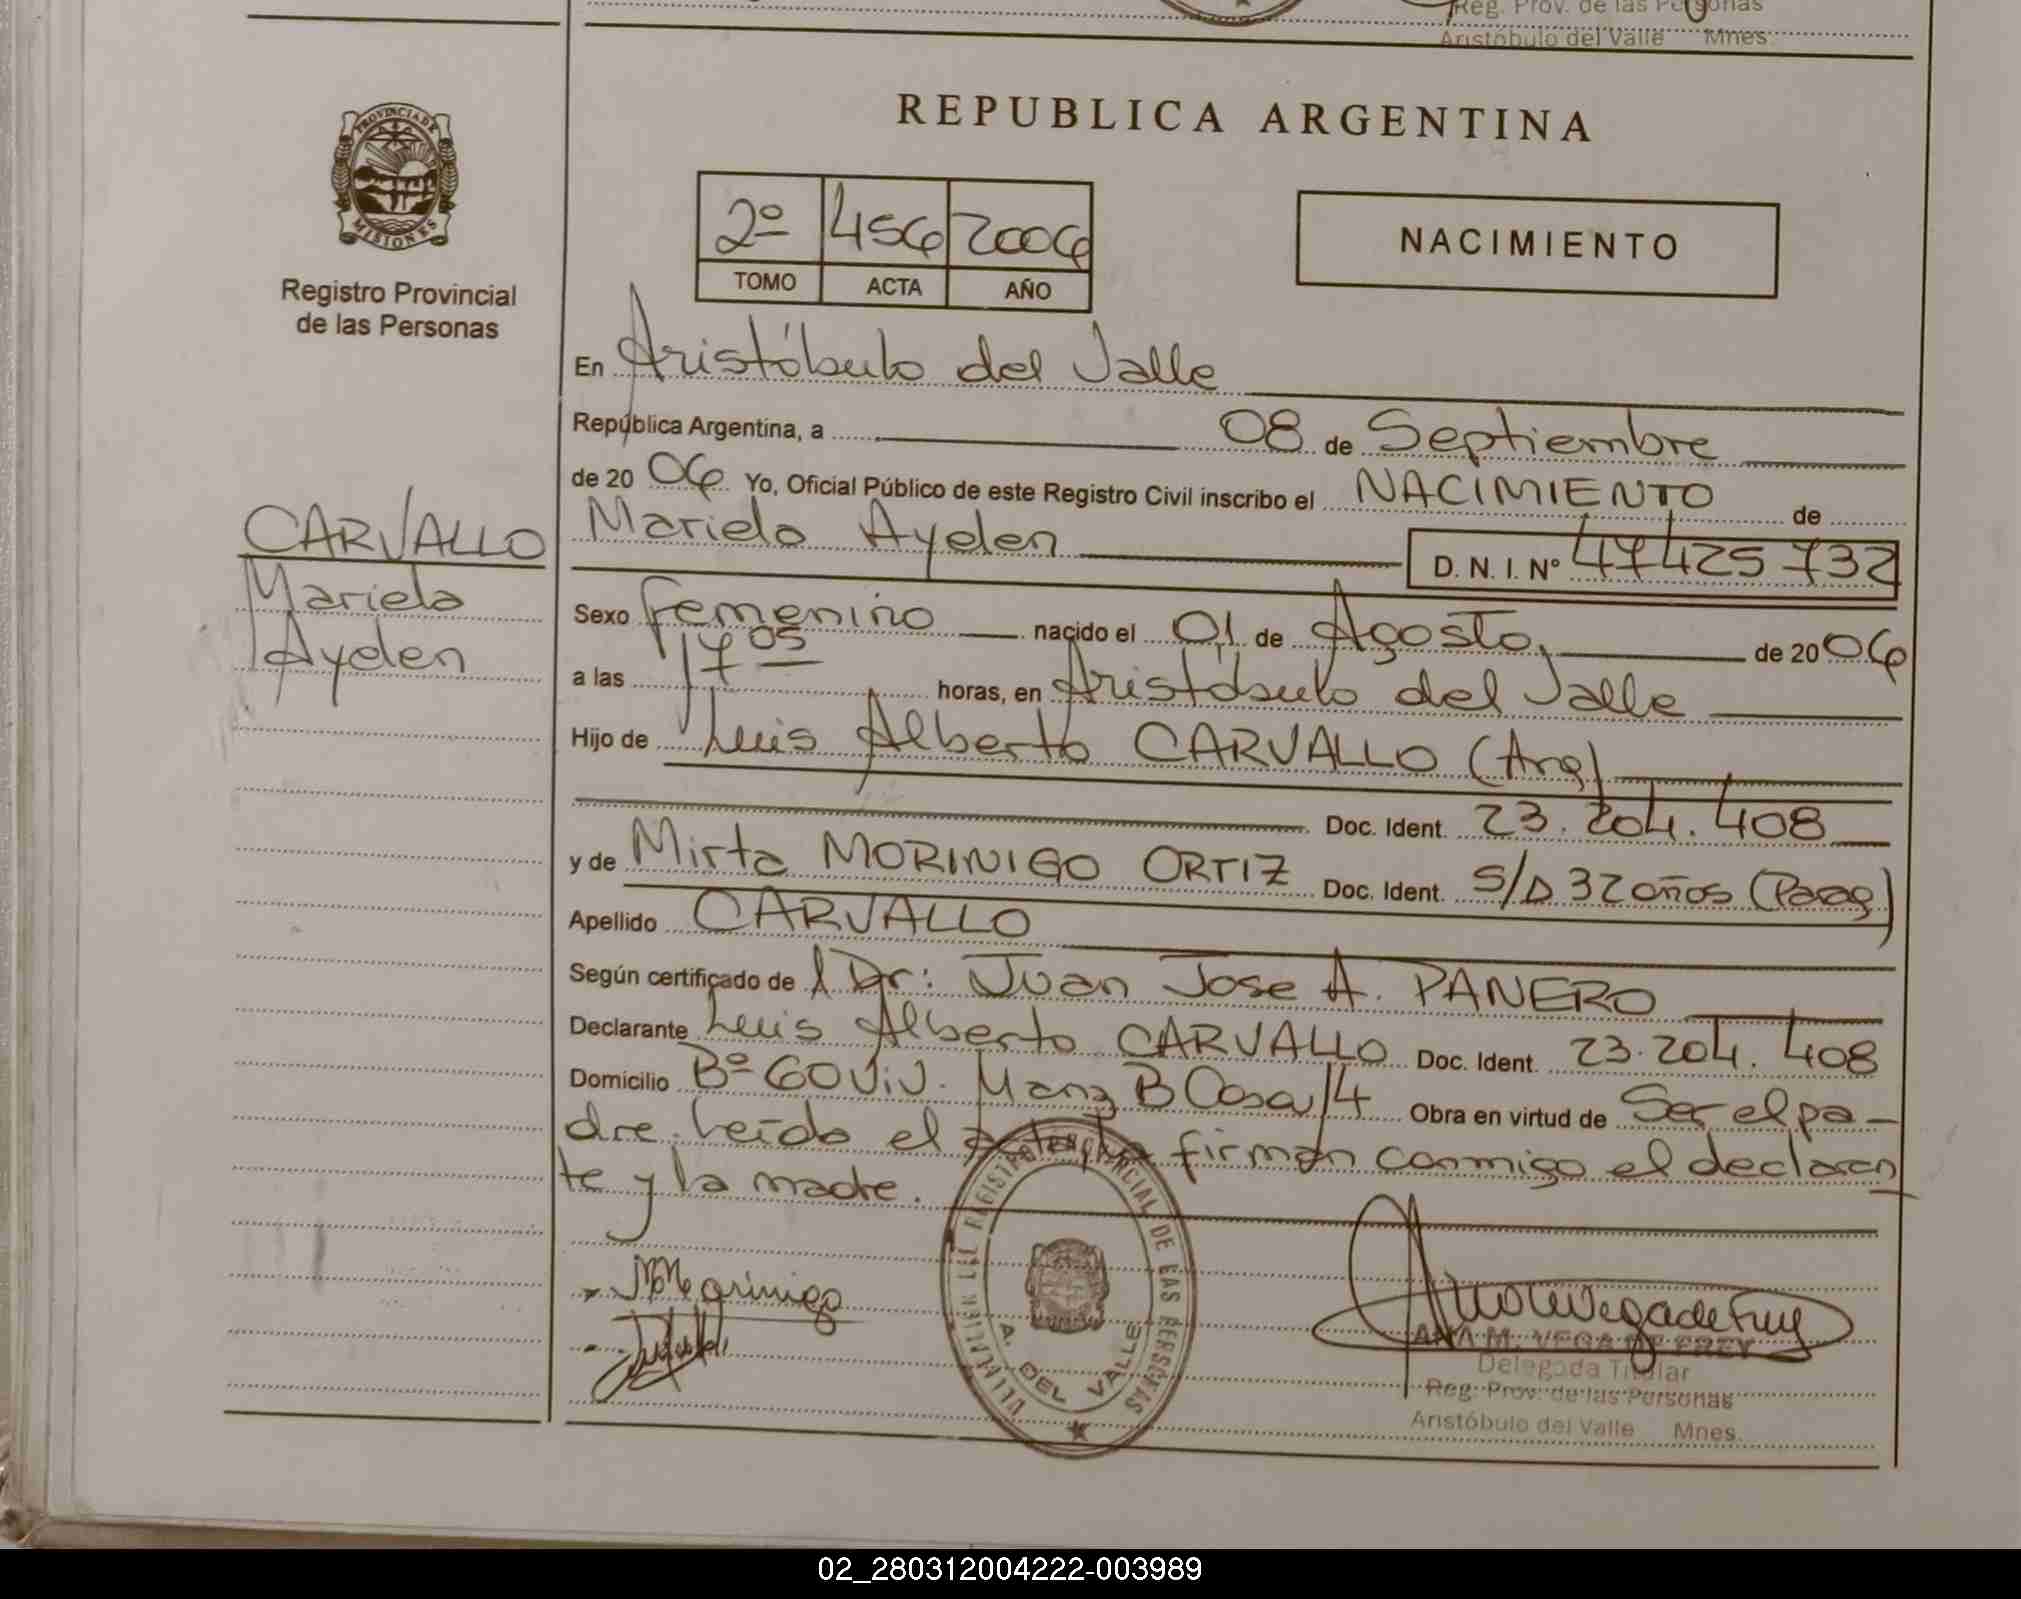 Reg. Prov. de las Personas
Aristóbulo del Valle Mnes.
PROVINCIA DE
MISIONES
Registro Provincial
de las Personas
REPUBLICA ARGENTINA
2º 456 2006
TOMO ACTA AÑO
NACIMIENTO
En Aristóbulo del Valle
República Argentina, a 08 de Septiembre
de 2006 Yo, Oficial Público de este Registro Civil inscribo el NACIMIENTO de
CARVALLO
Mariela
Ayelen
Mariela Ayelen D. N. I. Nº 47425732
Sexo Femenino nacido el 01 de Agosto de 2006
a las 17 05 horas, en Aristóbulo del Valle
Hijo de Luis Alberto CARVALLO (Arg)
Doc. Ident. 23.204.408
y de Mirta MORINIGO ORTIZ Doc. Ident. S/D 32 años (Parag)
Apellido CARVALLO
Según certificado de l Dr: Juan Jose A. PANERO
Declarante Luis Alberto CARVALLO Doc. Ident. 23.204.408
Domicilio Bº 60 Viv. Manz B Casa 14 Obra en virtud de Ser el pa-
dre. Leída el acta, la firman conmigo el declaran
te y la madre.
REGISTRO PROVINCIAL DE LAS PERSONAS
A. DEL VALLE
Morinigo
ANA M. VEGA DE FREY
Delegada Titular
Reg. Prov. de las Personas
Aristóbulo del Valle Mnes.
02_280312004222-003989